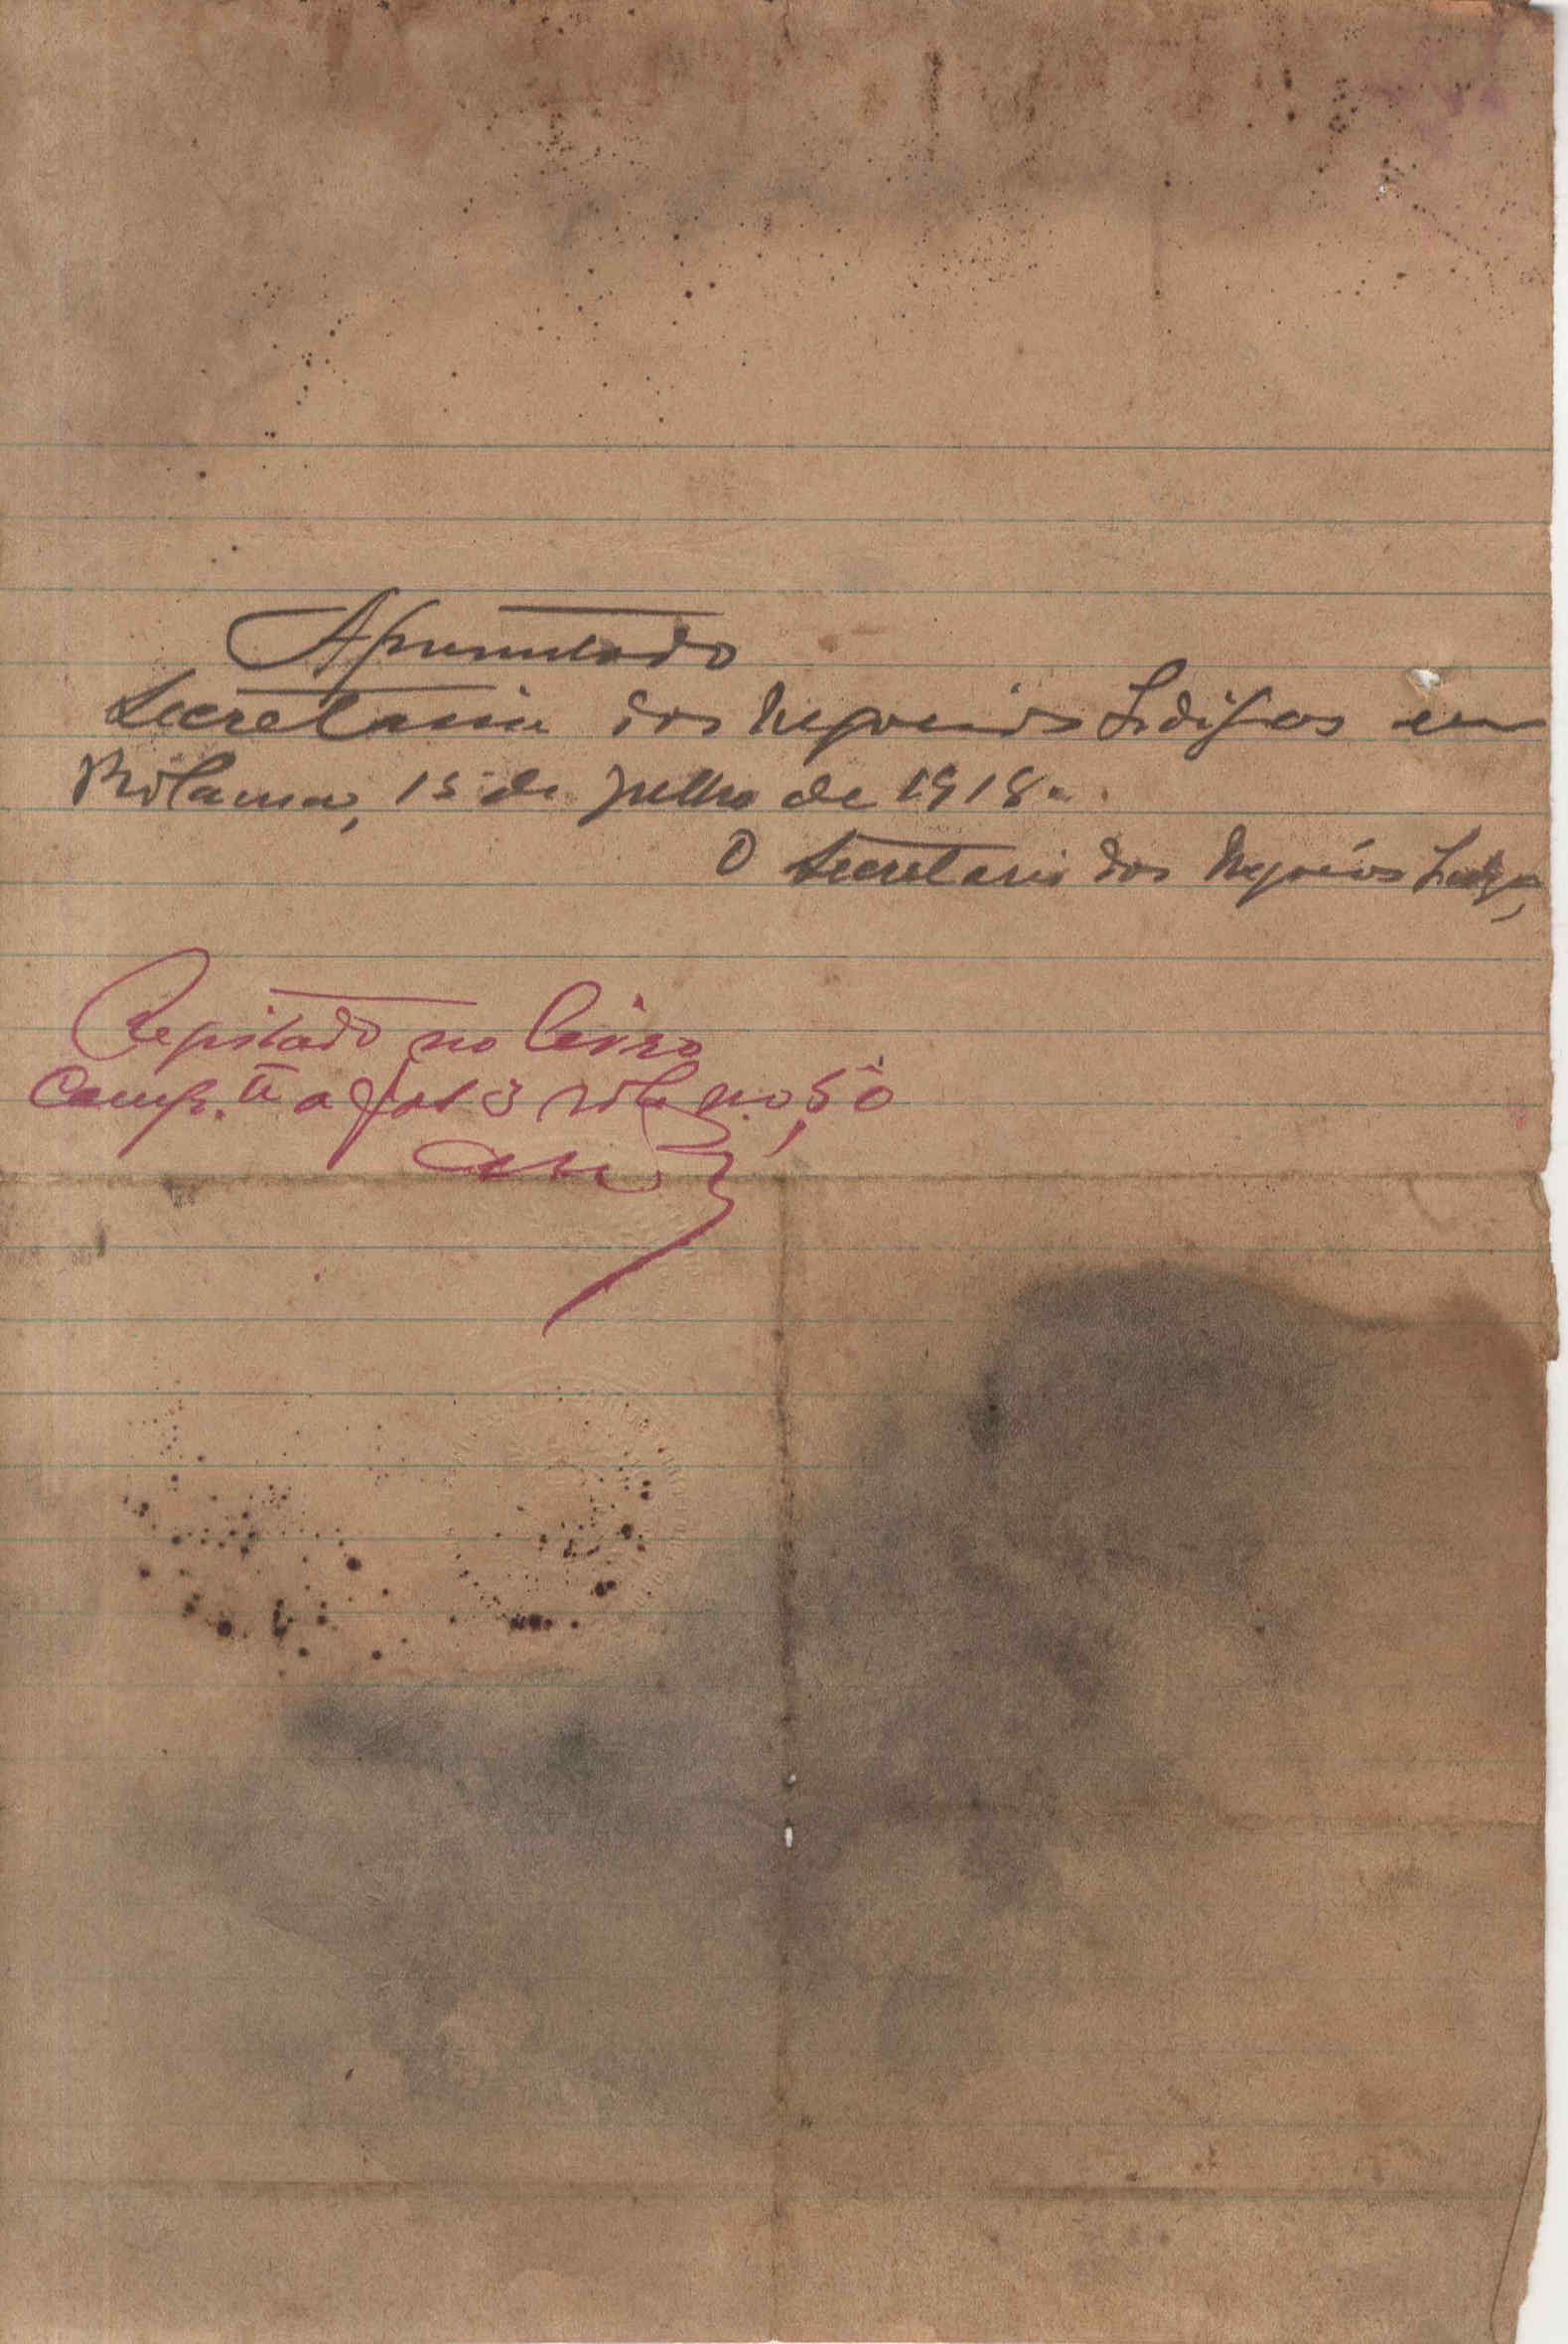 Apresentado
Secretaria dos Negocios Indigenas em
Bolama, 15 de Julho de 1918.
O Secretario dos Negocios Indigas,
Registado no Livro
comp.te a fol 3 sob n.o 50